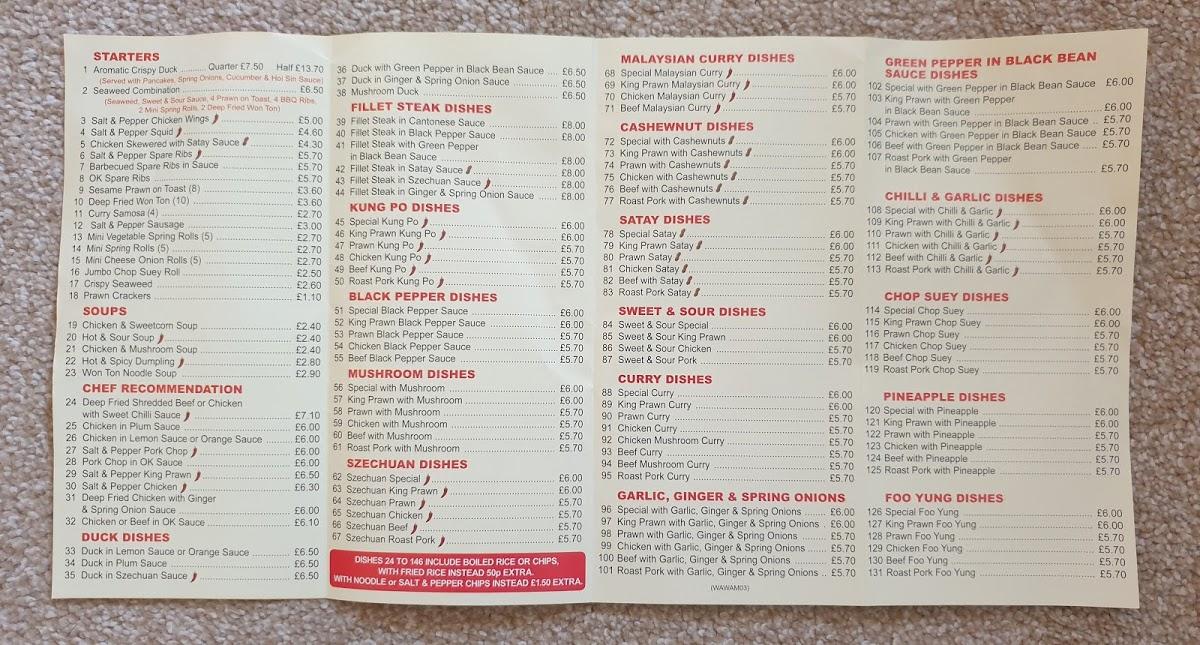 STARTERS
1 Aromatic Crispy Duck Quarter £7.50 Half £13.70
(Served with Pancakes, Spring Onions, Cucumber & Hoi Sin Sauce)
2 Seaweed Combination £6.50
(Seaweed, Sweet & Sour Sauce, 4 Prawn on Toast, 4 BBQ Ribs,
2 Mini Spring Rolls, 2 Deep Fried Won Ton)
3 Salt & Pepper Chicken Wings £5.00
4 Salt & Pepper Squid £4.60
5 Chicken Skewered with Satay Sauce £4.30
6 Salt & Pepper Spare Ribs £5.70
7 Barbecued Spare Ribs in Sauce £5.70
8 OK Spare Ribs £5.70
9 Sesame Prawn on Toast (8) £3.60
10 Deep Fried Won Ton (10) £3.60
11 Curry Samosa (4) £2.70
12 Salt & Pepper Sausage £3.00
13 Mini Vegetable Spring Rolls (5) £2.70
14 Mini Spring Rolls (5) £2.70
15 Mini Cheese Onion Rolls (5) £2.70
16 Jumbo Chop Suey Roll £2.50
17 Crispy Seaweed £2.60
18 Prawn Crackers £1.10
SOUPS
19 Chicken & Sweetcorn Soup £2.40
20 Hot & Sour Soup £2.40
21 Chicken & Mushroom Soup £2.40
22 Hot & Spicy Dumpling £2.80
23 Won Ton Noodle Soup £2.90
CHEF RECOMMENDATION
24 Deep Fried Shredded Beef or Chicken
with Sweet Chilli Sauce £7.10
25 Chicken in Plum Sauce £6.00
26 Chicken in Lemon Sauce or Orange Sauce £6.00
27 Salt & Pepper Pork Chop £6.00
28 Pork Chop in OK Sauce £6.00
29 Salt & Pepper King Prawn £6.50
30 Salt & Pepper Chicken £6.30
31 Deep Fried Chicken with Ginger
& Spring Onion Sauce £6.00
32 Chicken or Beef in OK Sauce £6.10
DUCK DISHES
33 Duck in Lemon Sauce or Orange Sauce £6.50
34 Duck in Plum Sauce £6.50
35 Duck in Szechuan Sauce £6.50
36 Duck with Green Pepper in Black Bean Sauce £6.50
37 Duck in Ginger & Spring Onion Sauce £6.50
38 Mushroom Duck £6.50
FILLET STEAK DISHES
39 Fillet Steak in Cantonese Sauce £8.00
40 Fillet Steak in Black Pepper Sauce £8.00
41 Fillet Steak with Green Pepper
in Black Bean Sauce £8.00
42 Fillet Steak in Satay Sauce £8.00
43 Fillet Steak in Szechuan Sauce £8.00
44 Fillet Steak in Ginger & Spring Onion Sauce £8.00
KUNG PO DISHES
45 Special Kung Po £6.00
46 King Prawn Kung Po £6.00
47 Prawn Kung Po £5.70
48 Chicken Kung Po £5.70
49 Beef Kung Po £5.70
50 Roast Pork Kung Po £5.70
BLACK PEPPER DISHES
51 Special Black Pepper Sauce £6.00
52 King Prawn Black Pepper Sauce £6.00
53 Prawn Black Pepper Sauce £5.70
54 Chicken Black Pepper Sauce £5.70
55 Beef Black Pepper Sauce £5.70
MUSHROOM DISHES
56 Special with Mushroom £6.00
57 King Prawn with Mushroom £6.00
58 Prawn with Mushroom £5.70
59 Chicken with Mushroom £5.70
60 Beef with Mushroom £5.70
61 Roast Pork with Mushroom £5.70
SZECHUAN DISHES
62 Szechuan Special £6.00
63 Szechuan King Prawn £6.00
64 Szechuan Prawn £5.70
65 Szechuan Chicken £5.70
66 Szechuan Beef £5.70
67 Szechuan Roast Pork £5.70
DISHES 24 TO 146 INCLUDE BOILED RICE OR CHIPS,
WITH FRIED RICE INSTEAD 50p EXTRA.
WITH NOODLE or SALT & PEPPER CHIPS INSTEAD £1.50 EXTRA.
MALAYSIAN CURRY DISHES
68 Special Malaysian Curry £6.00
69 King Prawn Malaysian Curry £6.00
70 Chicken Malaysian Curry £5.70
71 Beef Malaysian Curry £5.70
CASHEWNUT DISHES
72 Special with Cashewnuts £6.00
73 King Prawn with Cashewnuts £6.00
74 Prawn with Cashewnuts £5.70
75 Chicken with Cashewnuts £5.70
76 Beef with Cashewnuts £5.70
77 Roast Pork with Cashewnuts £5.70
SATAY DISHES
78 Special Satay £6.00
79 King Prawn Satay £6.00
80 Prawn Satay £5.70
81 Chicken Satay £5.70
82 Beef with Satay £5.70
83 Roast Pork Satay £5.70
SWEET & SOUR DISHES
84 Sweet & Sour Special £6.00
85 Sweet & Sour King Prawn £6.00
86 Sweet & Sour Chicken £5.70
87 Sweet & Sour Pork £5.70
CURRY DISHES
88 Special Curry £6.00
89 King Prawn Curry £6.00
90 Prawn Curry £5.70
91 Chicken Curry £5.70
92 Chicken Mushroom Curry £5.70
93 Beef Curry £5.70
94 Beef Mushroom Curry £5.70
95 Roast Pork Curry £5.70
GARLIC, GINGER & SPRING ONIONS
96 Special with Garlic, Ginger & Spring Onions £6.00
97 King Prawn with Garlic, Ginger & Spring Onions £6.00
98 Prawn with Garlic, Ginger & Spring Onions £5.70
99 Chicken with Garlic, Ginger & Spring Onions £5.70
100 Beef with Garlic, Ginger & Spring Onions £5.70
101 Roast Pork with Garlic, Ginger & Spring Onions £5.70
(WAWAM03)
GREEN PEPPER IN BLACK BEAN
SAUCE DISHES
102 Special with Green Pepper in Black Bean Sauce £6.00
103 King Prawn with Green Pepper
in Black Bean Sauce £6.00
104 Prawn with Green Pepper in Black Bean Sauce £5.70
105 Chicken with Green Pepper in Black Bean Sauce £5.70
106 Beef with Green Pepper in Black Bean Sauce £5.70
107 Roast Pork with Green Pepper
in Black Bean Sauce £5.70
CHILLI & GARLIC DISHES
108 Special with Chilli & Garlic £6.00
109 King Prawn with Chilli & Garlic £6.00
110 Prawn with Chilli & Garlic £5.70
111 Chicken with Chilli & Garlic £5.70
112 Beef with Chilli & Garlic £5.70
113 Roast Pork with Chilli & Garlic £5.70
CHOP SUEY DISHES
114 Special Chop Suey £6.00
115 King Prawn Chop Suey £6.00
116 Prawn Chop Suey £5.70
117 Chicken Chop Suey £5.70
118 Beef Chop Suey £5.70
119 Roast Pork Chop Suey £5.70
PINEAPPLE DISHES
120 Special with Pineapple £6.00
121 King Prawn with Pineapple £6.00
122 Prawn with Pineapple £5.70
123 Chicken with Pineapple £5.70
124 Beef with Pineapple £5.70
125 Roast Pork with Pineapple £5.70
FOO YUNG DISHES
126 Special Foo Yung £6.00
127 King Prawn Foo Yung £6.00
128 Prawn Foo Yung £5.70
129 Chicken Foo Yung £5.70
130 Beef Foo Yung £5.70
131 Roast Pork Foo Yung £5.70